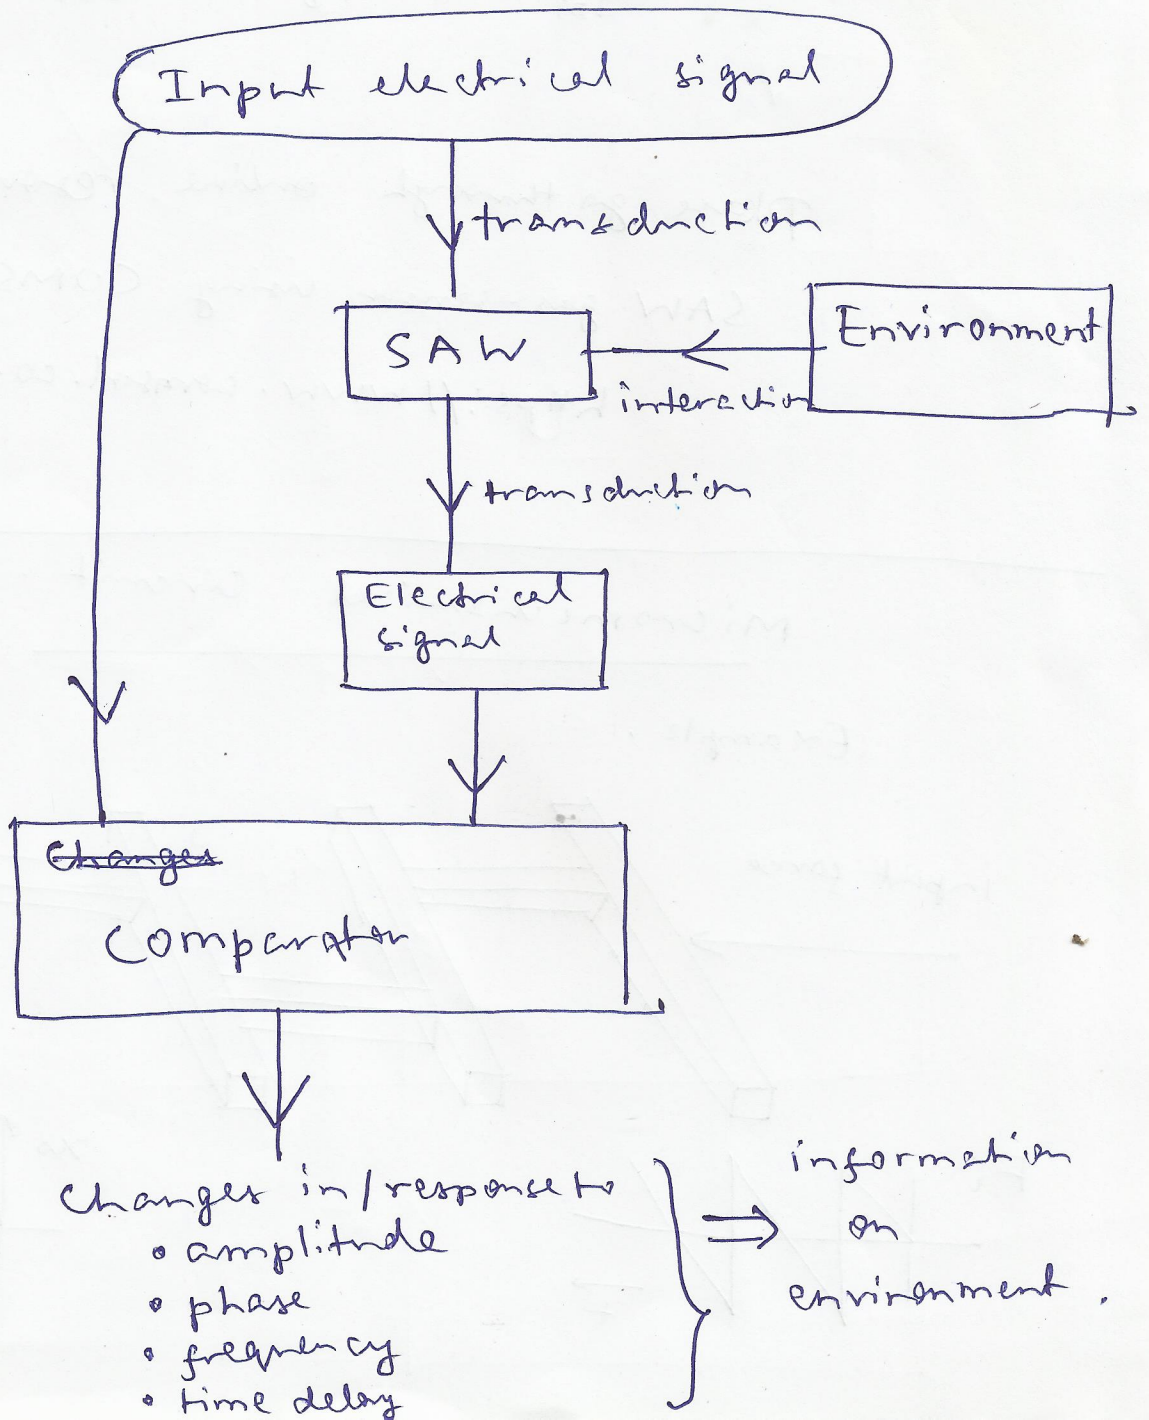 Input electrical signal
transduction
SAW
Environment
interaction
transduction
Electrical
signal
Changes
Comparator
Changes in/response to
• amplitude
• phase
• frequency
• time delay
⇒
information
on
environment.